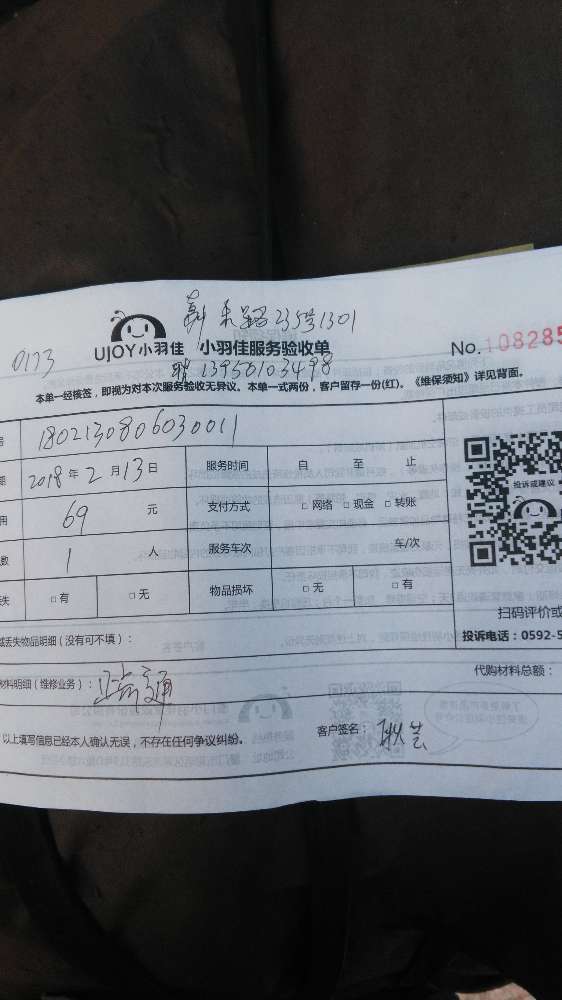 路235号1301
0173
UJOY小羽佳 小羽佳服务验收单 No.108285
13950103498
本单一经核签，即视为对本次服务验收无异议。本单一式两份，客户留存一份(红)。《维保须知》详见背面。
号 180213080603001
2018年2月13日 服务时间 自 至 止
用 69 元 支付方式 □网络 □现金 □转账
数 1 人 服务车次 车/次
失 □有 □无 物品损坏 □无 □有
投诉或建议
扫码评价或
丢失物品明细（没有可不填）： 投诉电话：0592-5
材料明细（维修业务）： 通 代购材料总额：
以上填写信息已经本人确认无误，不存在任何争议纠纷。 客户签名：